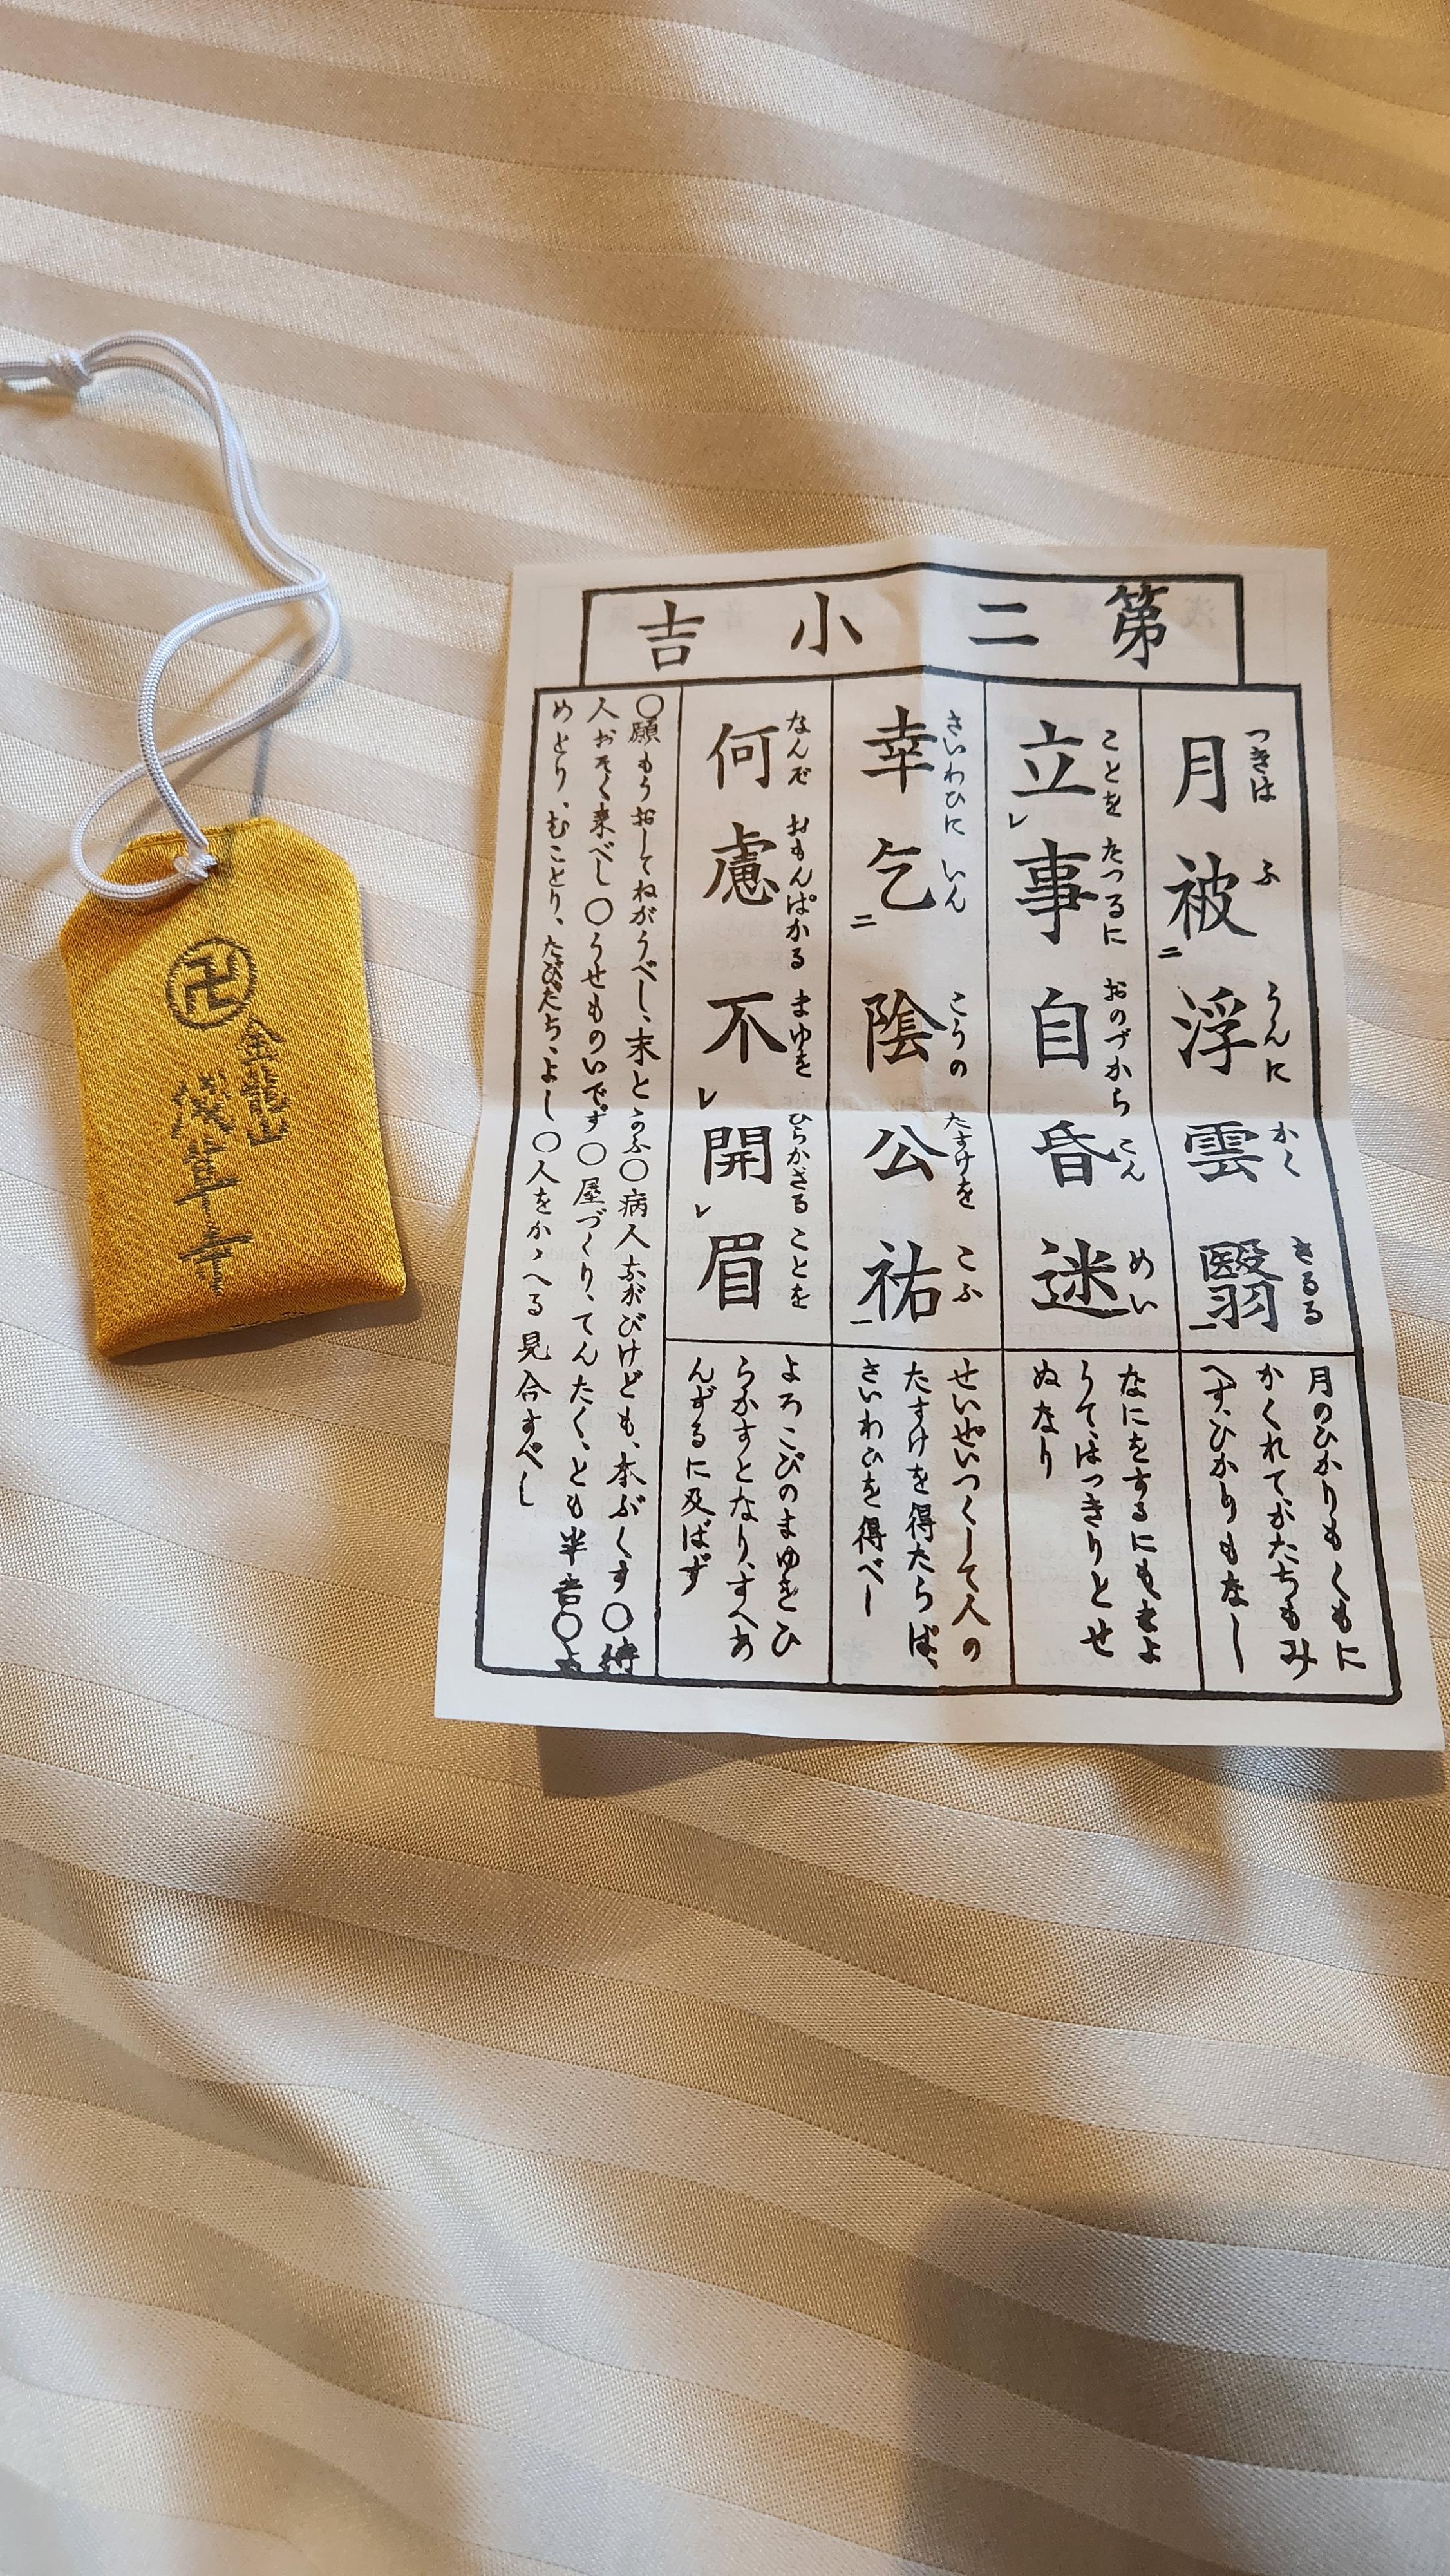 卍
金龍山
浅草寺
第二小吉
月被浮雲翳
つきは ふ うんに かく さるる
月のひかりもくもに
かくれてかたちもみ
へず、ひかりもなし
立事自昏迷
ことを たつるに おのづから こん めい
なにをするにもきよ
うてはつきりとせ
ぬなり
幸乞陰公祐
さいわひに いん こうの たすけを こふ
せいぜいつくして人の
たすけを得たらば、
さいわひを得べし
何慮不開眉
なんぞ おもんぱかる まゆを ひらかざる ことを
よろこびのまゆをひ
らかすとなり、すへあ
んずるに及ばず
○願もうおしてねがうべし、末とゝのふ○病人ながびけども、本ぶくす○待
人おそく来べし○うせものいでず○屋づくり、てんたく、とも半吉○よ
めとり、むことり、たびだち、よし○人をかゝへる見合すべし